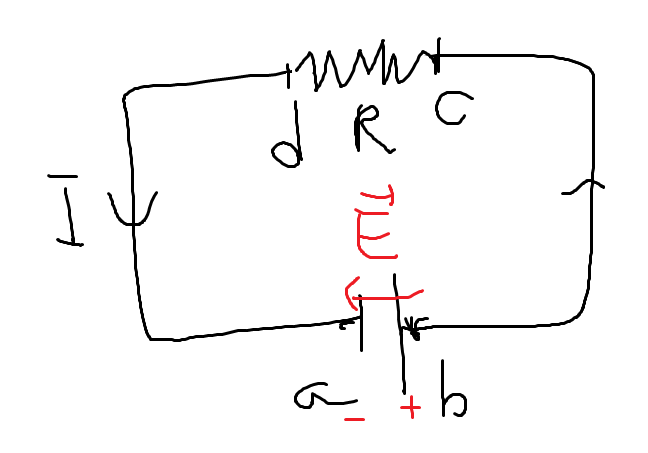 d R C
I
E
a - + b